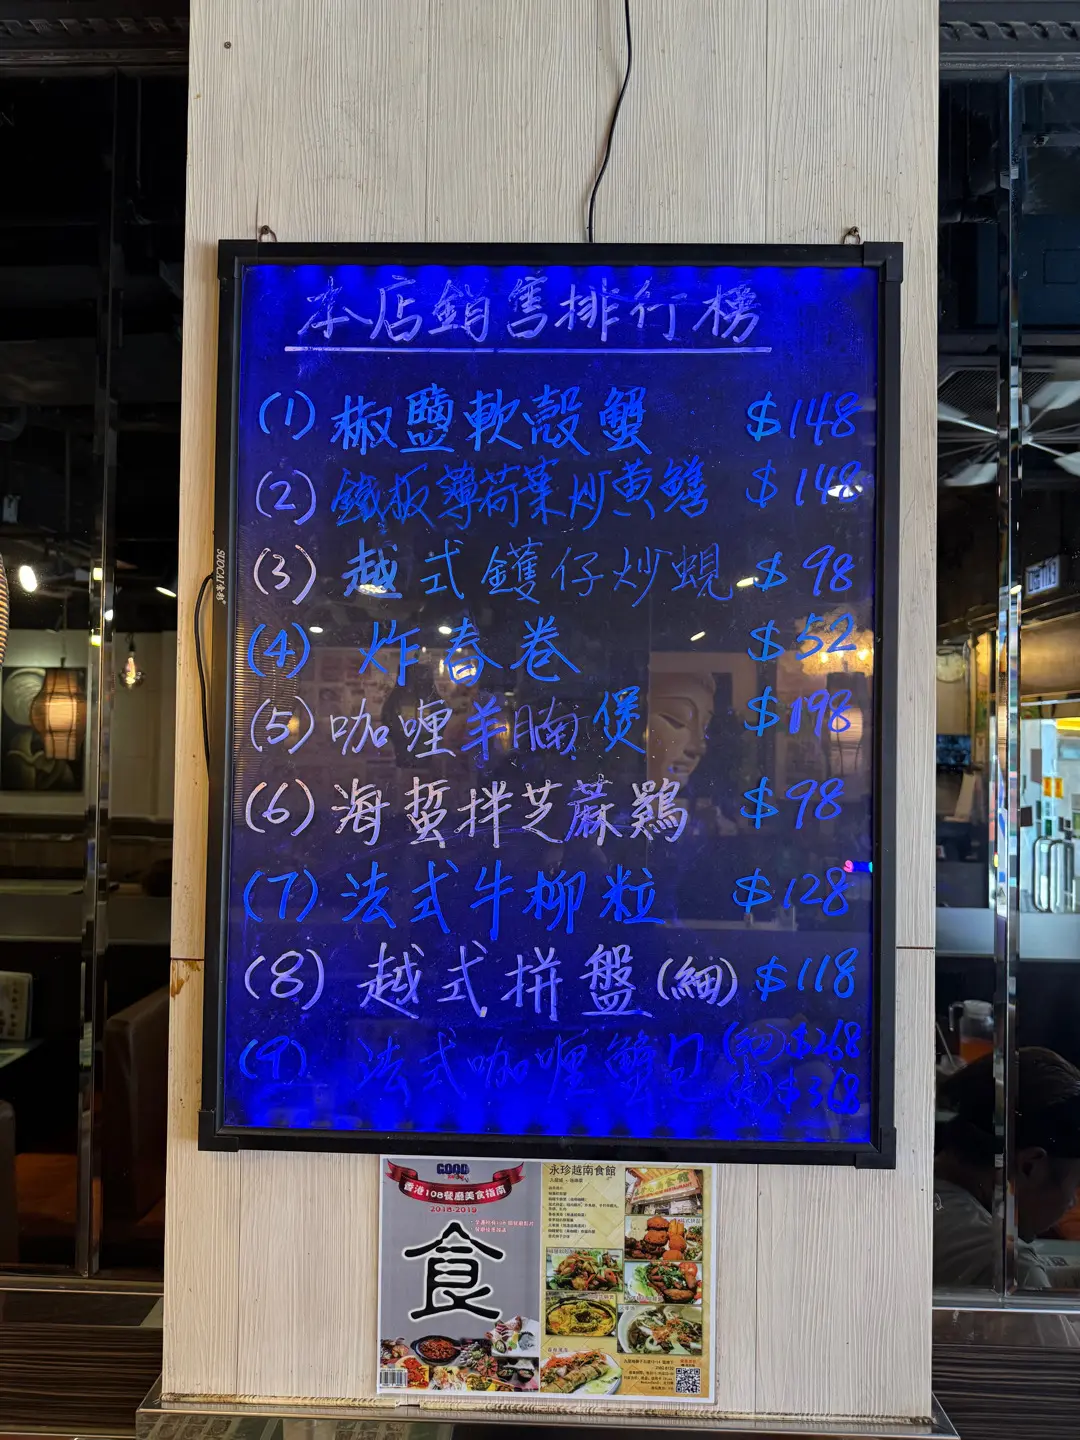 本店銷售排行榜
(1) 椒鹽軟殼蟹 $148
(2) 鐵板薄荷葉炒黃鱔 $148
(3) 越式鑊仔炒蜆 $98
(4) 炸春卷 $52
(5) 咖喱羊腩煲 $198
(6) 海蜇拌芝蔴鷄 $98
(7) 法式牛柳粒 $128
(8) 越式拼盤(細) $118
(9) 法式咖喱蟹包 (細) $268
(大) $368
SUOCAI
GOOD
香港108餐廳美食指南
2018-2019
食
永珍越南食館